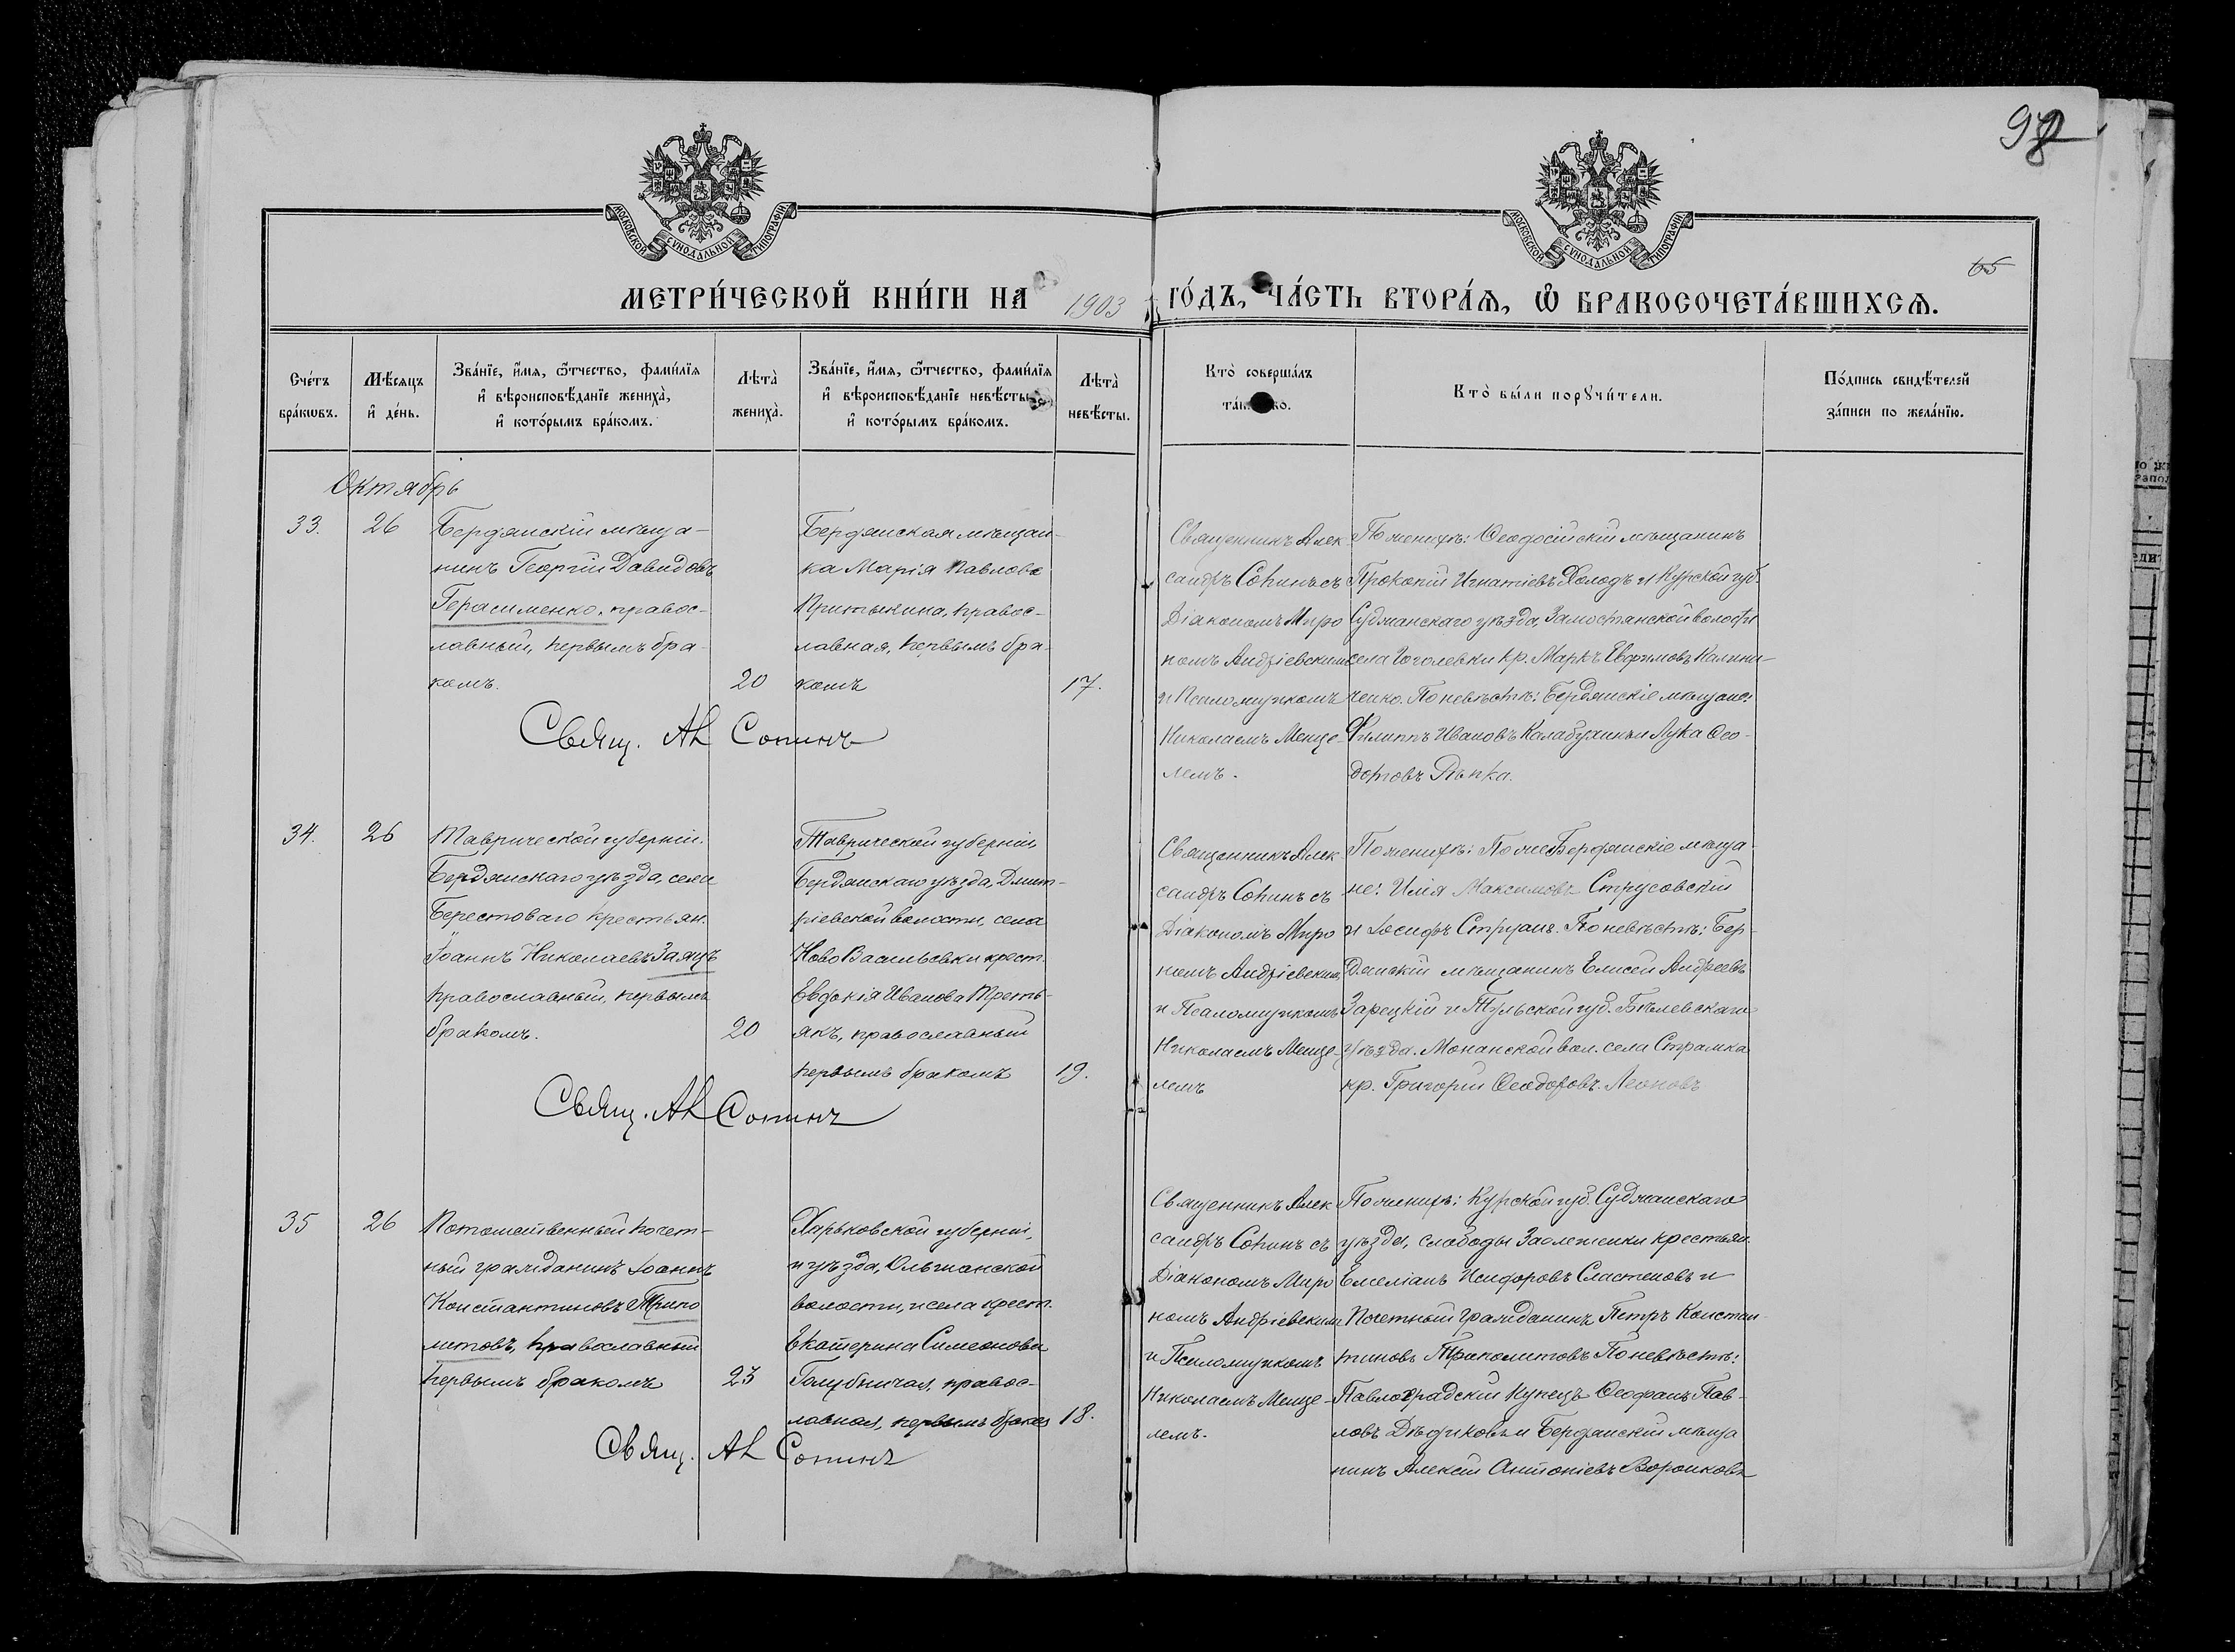 98
МОСКОВСКОЙ СУНОДАЛЬНОЙ ТИПОГРАФІИ
МОСКОВСКОЙ СУНОДАЛЬНОЙ ТИПОГРАФІИ
65
МЕТРИ́ЧЕСКОЙ КНИ́ГИ НА 1903 ГО́ДЪ, ЧА́СТЬ ВТОРА́Ѧ, Ѿ БРАКОСОЧЕТА́ВШИХСѦ.
Сче́тъ
бра́кѡвъ.
Мѣ́сяцъ
и҆ де́нь.
Зва́нїе, и҆́мя, ѻ҆́тчество, фами́лїя
и҆ вѣроисповѣ́данїе жениха̀,
и҆ кото́рымъ бра́комъ.
Лѣта̀
жениха̀.
Зва́нїе, и҆́мя, ѻ҆́тчество, фами́лїя
и҆ вѣроисповѣ́данїе невѣ́сты,
и҆ кото́рымъ бра́комъ.
Лѣта̀
невѣ́сты.
Кто̀ соверша́лъ
Кто̀ бы́ли порꙋчи́тели.
По́дпись свидѣ́телей
за́писи по жела́нїю.
Октябрь
33.
26
Бердянскій мѣща-
нинъ Георгій Давидовъ
Герасименко, правос-
лавный, первымъ бра-
комъ.
20
Бердянская мѣщан-
ка Марія Павлова
Притыкина, правос-
лавная, первымъ бра-
комъ
17.
Священникъ Алек-
сандръ Сопинъ съ
Діакономъ Миро
номъ Андріевскимъ
и Псаломщикомъ
Николаемъ Менце-
лемъ.
По женихѣ: Ѳеодосійскій мѣщанинъ
Прокопій Игнатіевъ Холодъ и Курской губ.
Суджанскаго уѣзда, Замостянской волости
села Гоголевки кр. Маркъ Евфимовъ Калини-
ченко. По невѣстѣ: Бердянскіе мѣщане:
Филиппъ Ивановъ Калабухинъ и Лука Ѳео-
дотовъ Рѣпка.
Свящ. Ал Сопинъ
34.
26
Таврической губерніи,
Бердянскаго уѣзда, села
Берестоваго крестьян.
Іоаннъ Николаевъ Заяцъ
православный, первымъ
бракомъ.
20
Таврической губерніи
Бердянскаго уѣзда, Дмит-
ріевской волости, села
Ново Васильевки крест.
Евдокія Иванова Треть-
якъ, православный
первымъ бракомъ
19.
Священникъ Алек-
сандръ Сопинъ съ
Діакономъ Миро
номъ Андріевскимъ
и Псаломщикомъ
Николаемъ Менце-
лемъ
По женихѣ: Бердянскіе мѣща-
не: Илія Максимовъ Струсовскій
и Іосифъ Струсов. По невѣстѣ: Бер-
дянскій мѣщанинъ Елисей Андреевъ
Зарецкій и Тульской губ. Бѣлевскаго
уѣзда. Монанской вол. села Страмка
кр. Григорій Ѳеодоровъ Леоновъ
Свящ. Ал Сопинъ
35
26
Потомственный почет-
ный гражданинъ Іоаннъ
Константиновъ Трипо
литовъ, православный
первымъ бракомъ
23
Харьковской губерніи,
и уѣзда, Ольшанской
волости, и села крест.
Екатерина Симеонова
Голубничая, правос-
лавная, первымъ браком
18.
Священникъ Алек
сандръ Сопинъ съ
Діакономъ Миро
номъ Андріевскимъ
и Псаломщикомъ
Николаемъ Менце-
лемъ.
По женихѣ: Курской губ. Суджанскаго
уѣзда, слободы Заолешенки крестьян.
Емеліанъ Исидоровъ Сластеновъ и
Почетный Гражданинъ Петръ Констан-
тиновъ Триполитовъ По невѣстѣ:
Павлоградскій Купецъ Ѳеофанъ Пав-
ловъ Дѣдиковъ и Бердянскій мѣща
нинъ Алексій Антоніевъ Воронковъ
Свящ. Ал Сопинъ